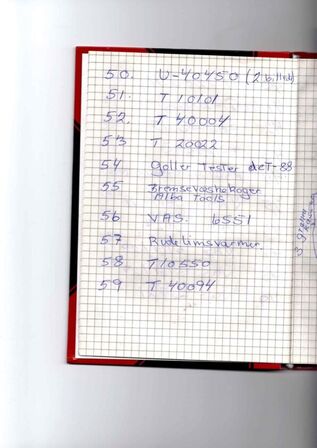 50. U-40450 (2 billed)
51. T 10101
52. T 40004
53 T 20022
54 Goller Tester dcT-88
55 Bremsevæskekoger
Alba Tools
56 VAS. 6551
57 Rudelimsvarmer.
58 T10550
59 T 40094